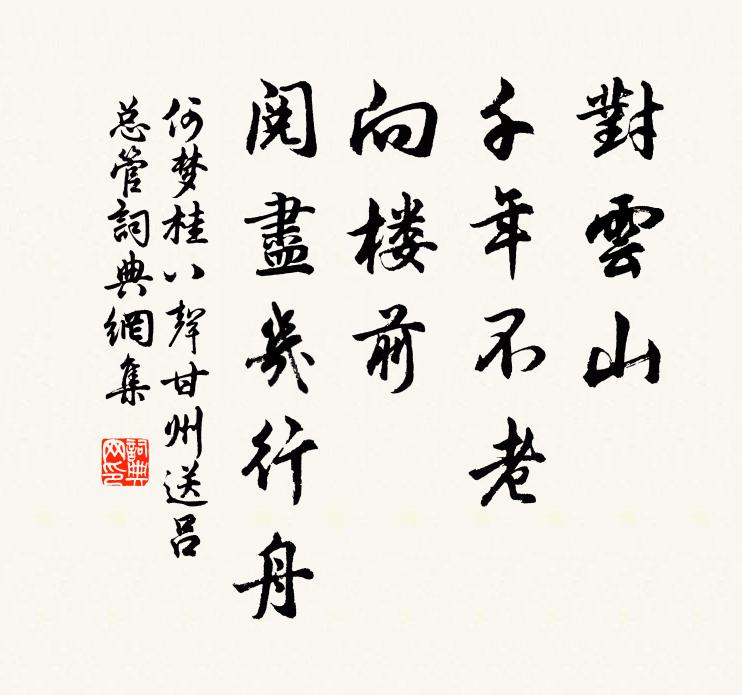 對雲山
千年不老
向楼前
閱盡幾行舟
何梦桂八聲甘州送吕
总管詞典網集
詞典
网印